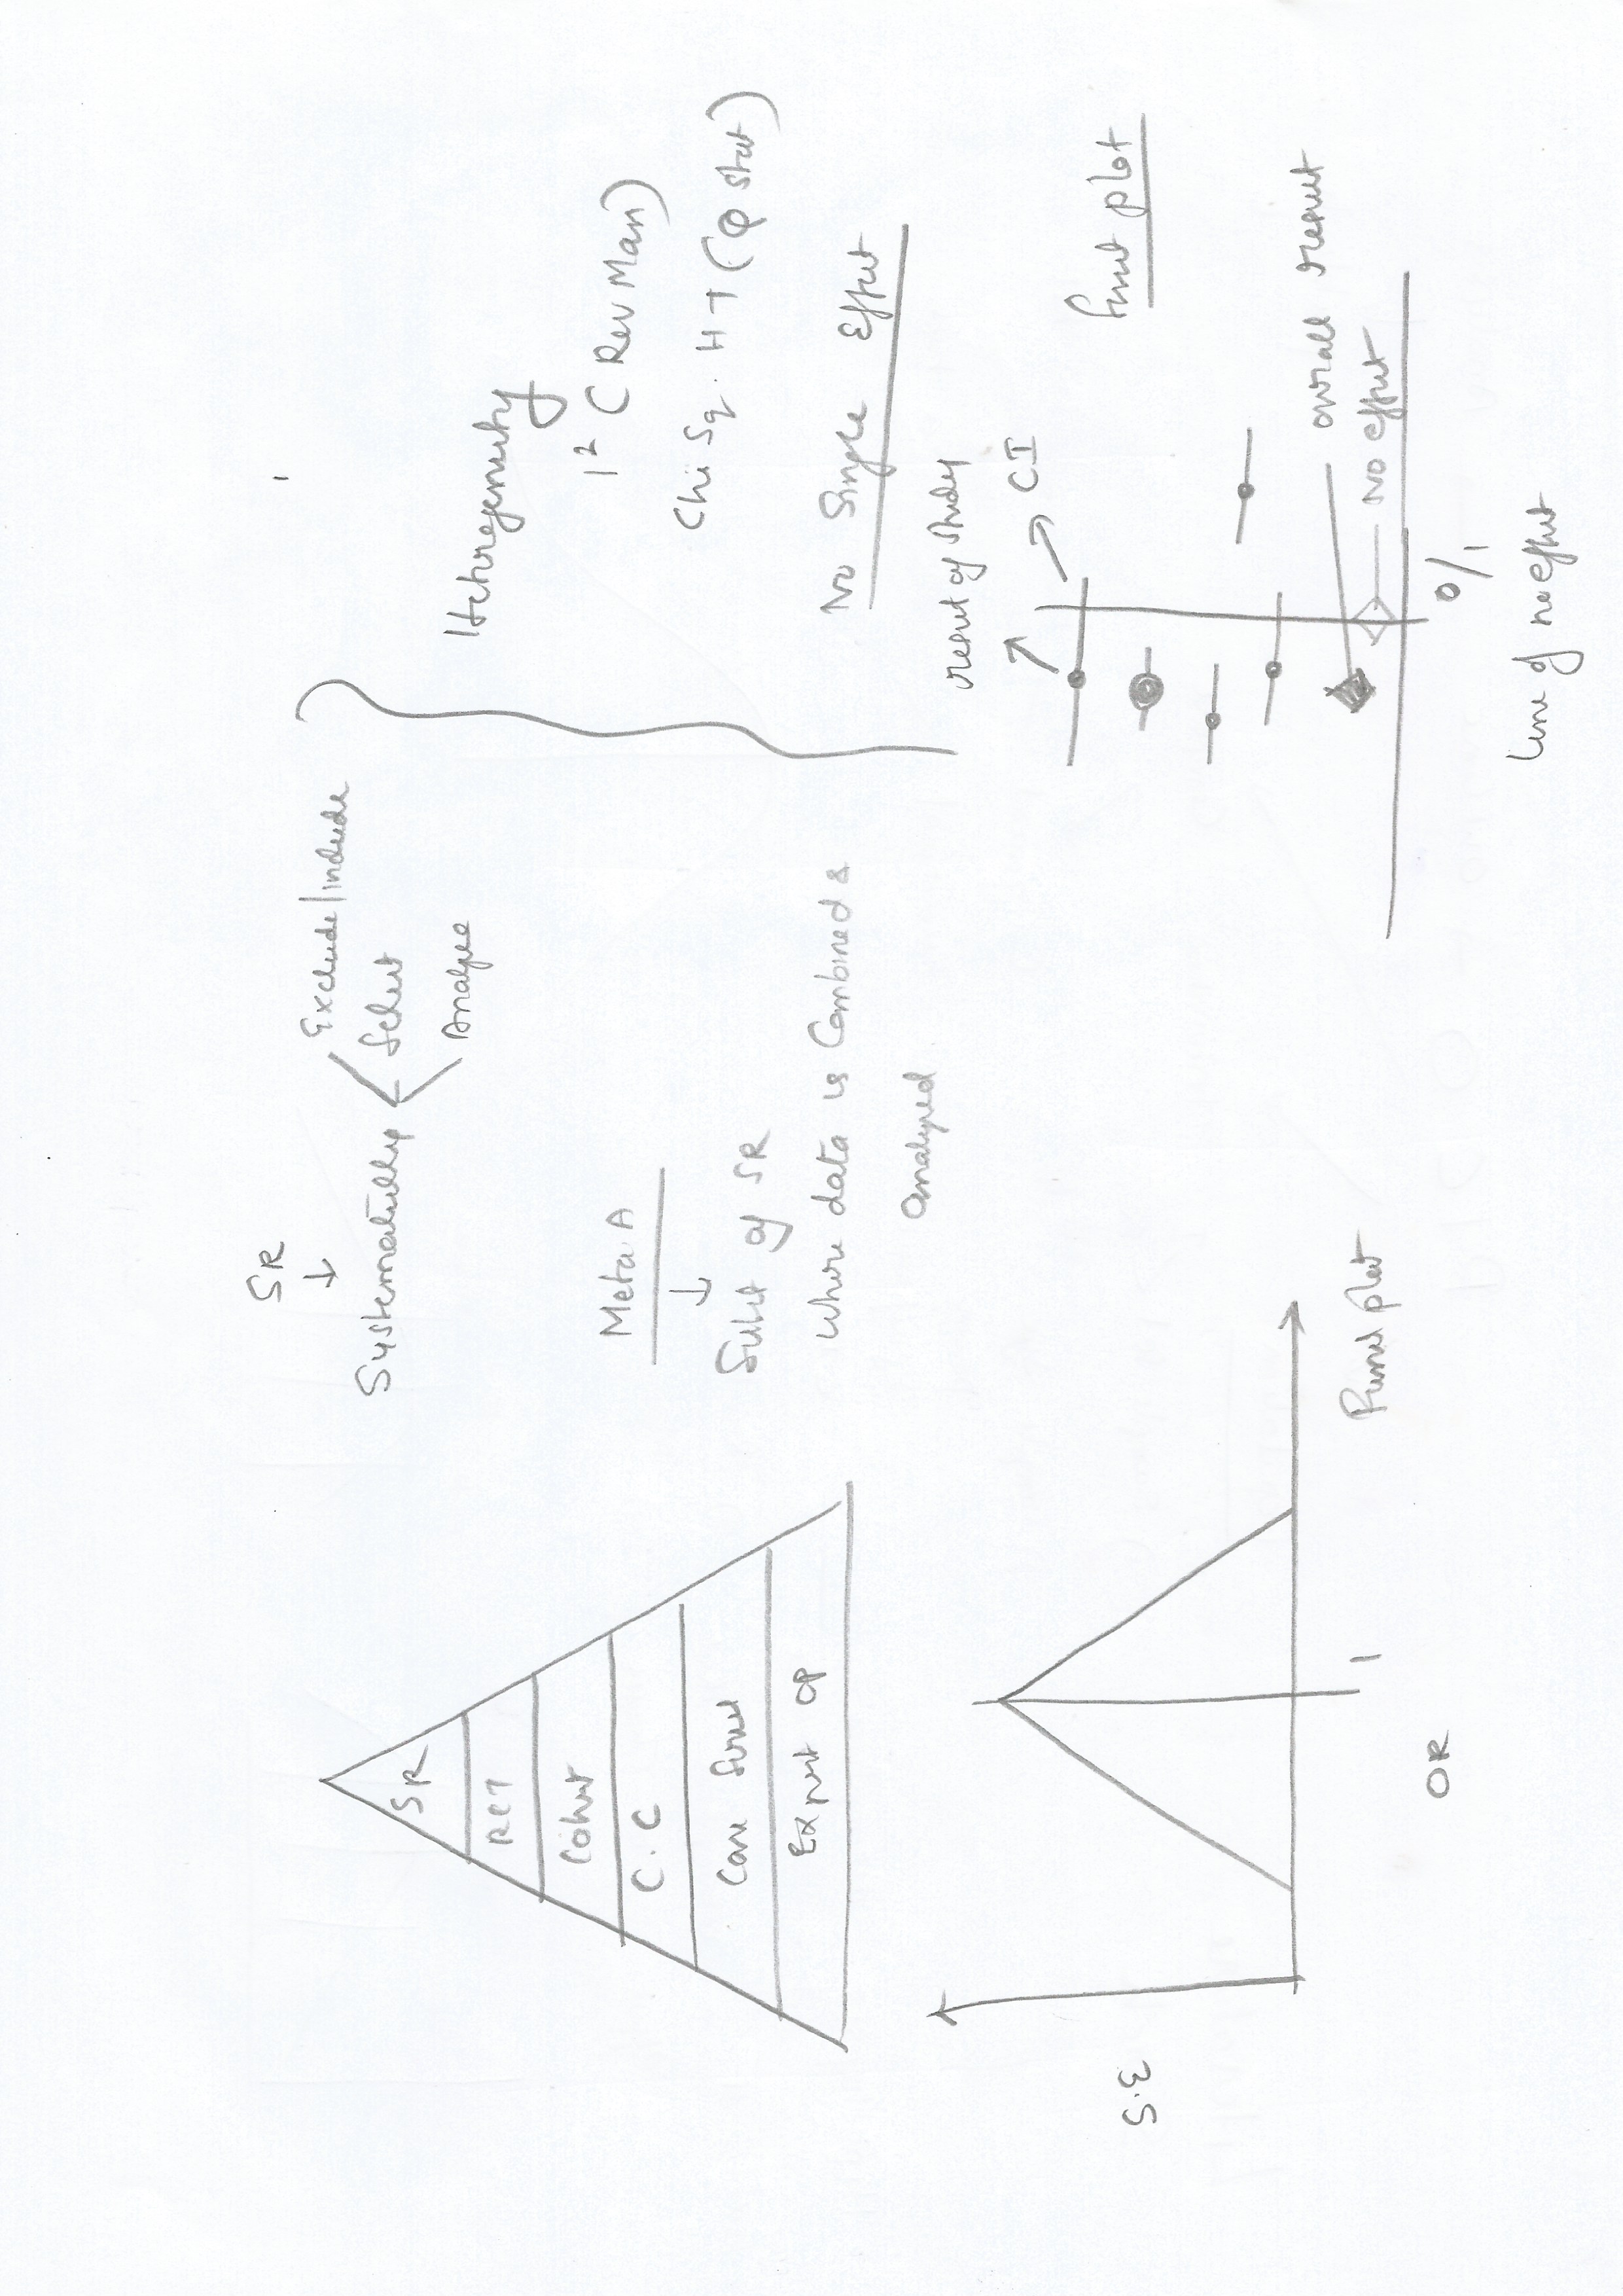 SR
RCT
Cohort
C.C
Case Series
Expert OP
SR
↓
Systematically
Exclude/include
Select
Analyse
Meta A
↓
Subset of SR
Where data is Combined &
analysed
Heterogenity
I² (Rev Man)
Chi Sq. H T (Q stat)
No Single Effect
S.E
1
OR
Funnel plot
result of study
CI
forest plot
overall result
No effect
0/1
Line of no effect